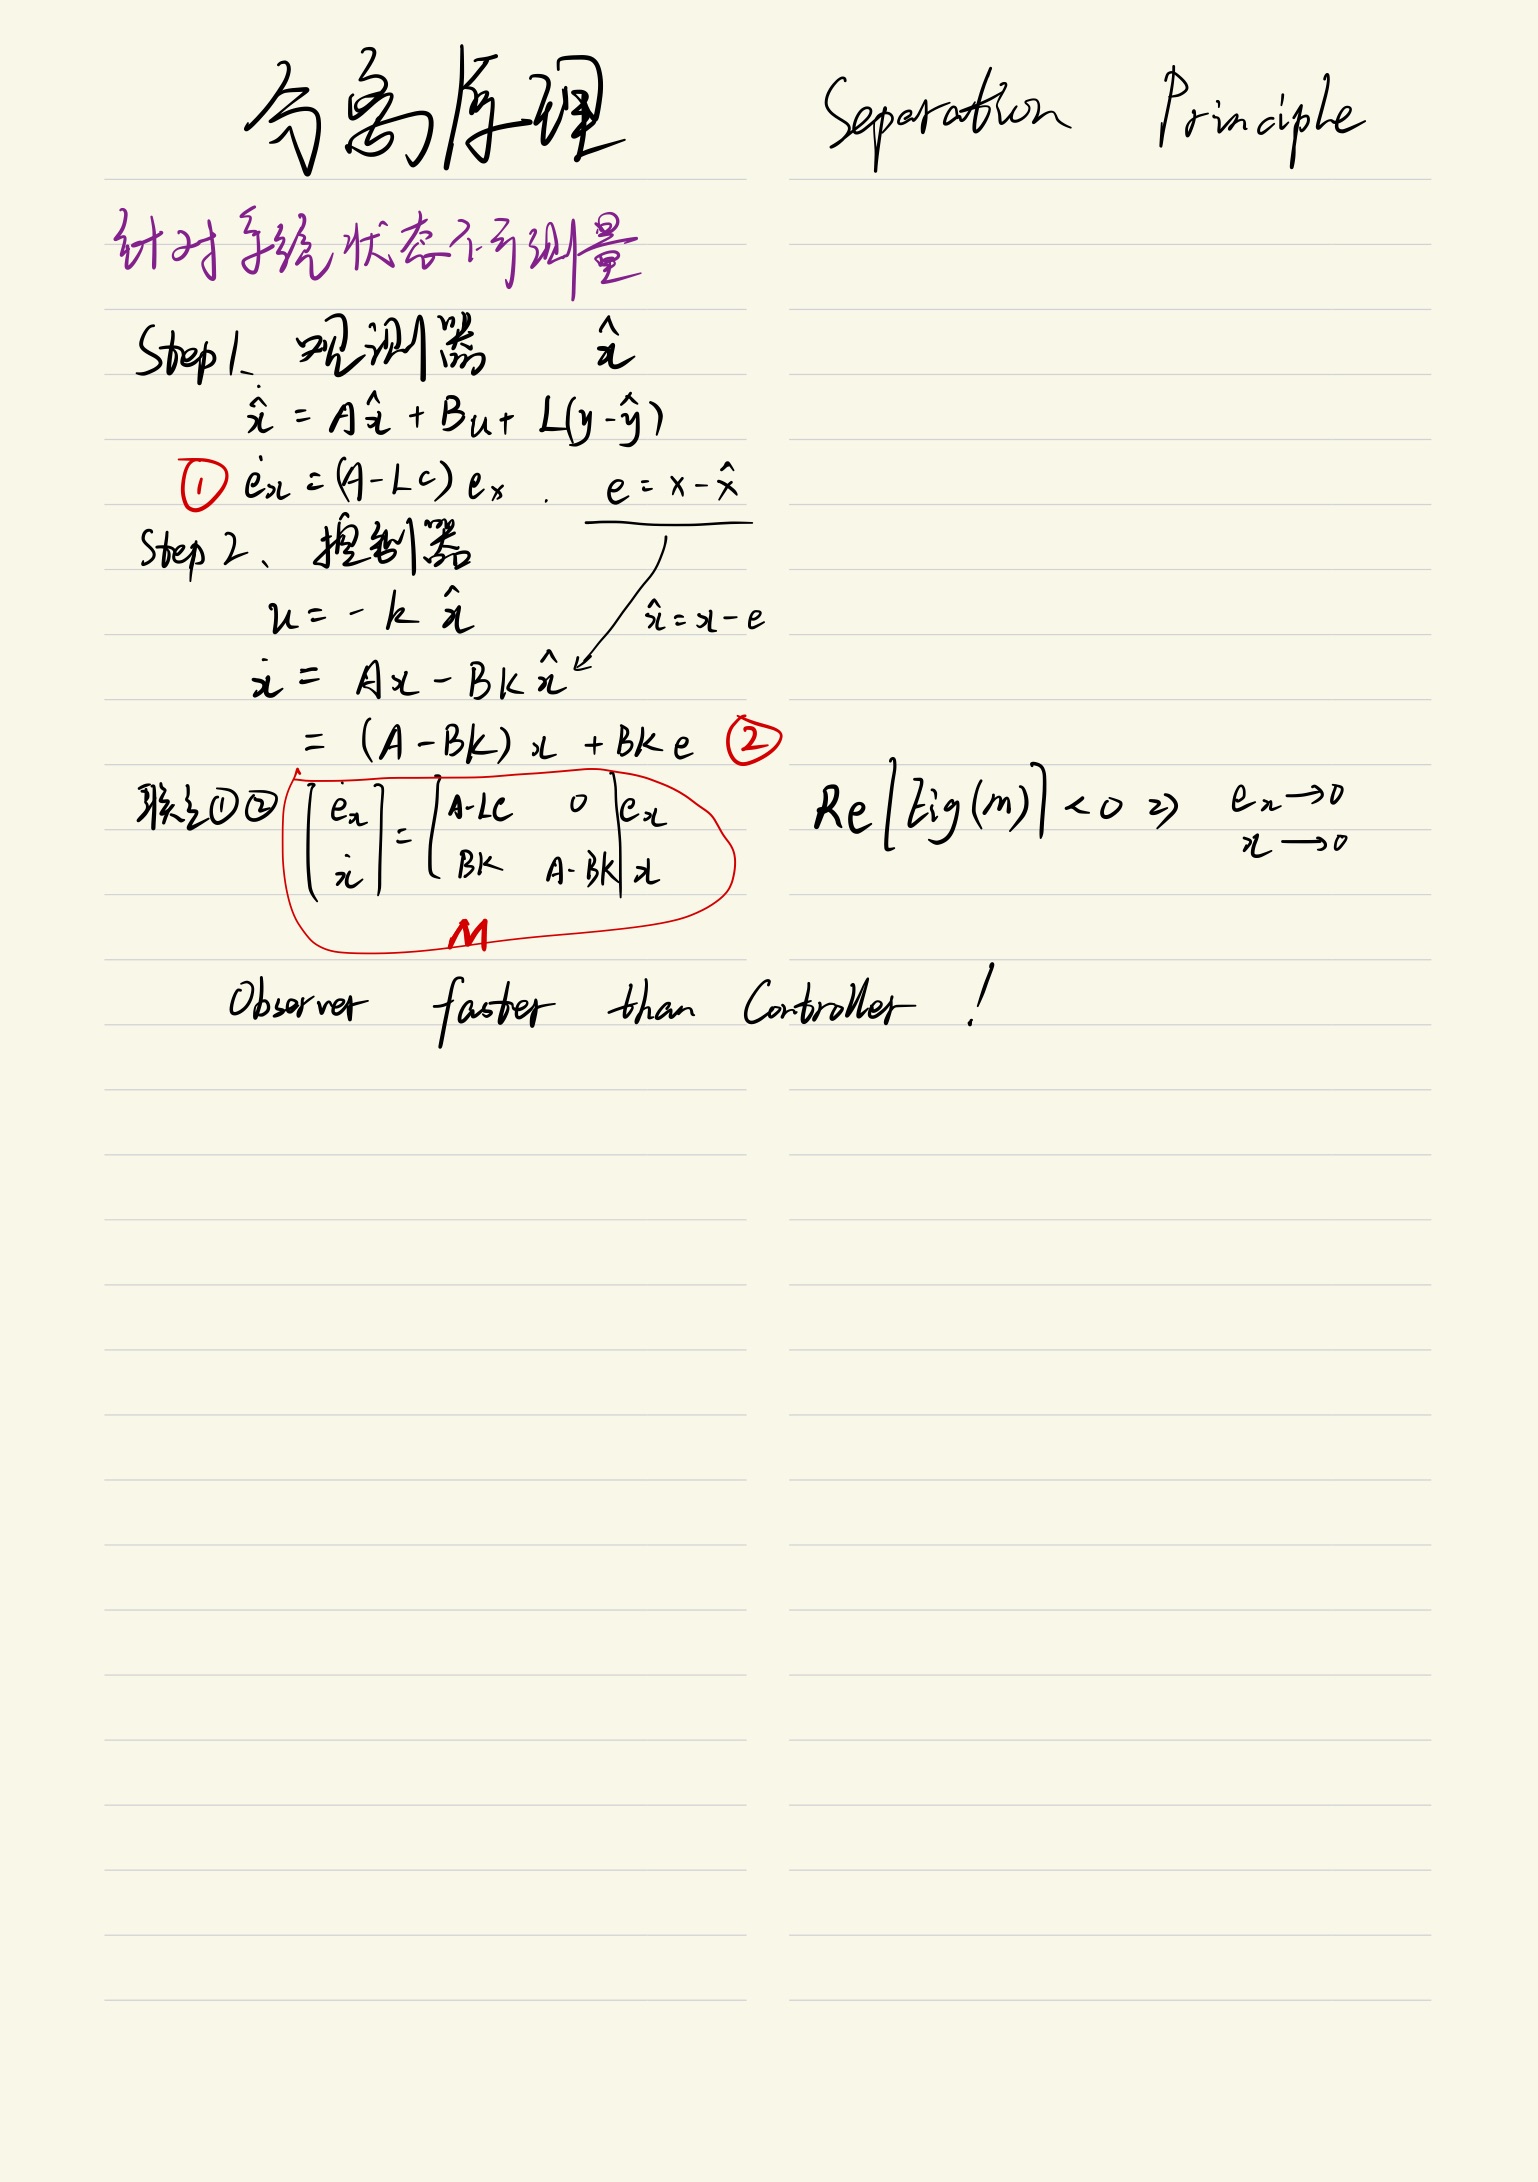 分离原理 Separation Principle
针对系统状态不可测量
Step 1、观测器 x̂
x̂̇ = Ax̂ + Bu + L(y-ŷ)
① ėx = (A-LC) ex . e = x - x̂
Step 2、控制器
u = - k x̂ x̂ = x - e
ẋ = Ax - BK x̂
= (A-BK) x + BK e ②
联立①② [ėx ẋ] = [A-LC 0 BK A-BK] ex x Re[Eig(m)] < 0 => ex → 0 x → 0
M
Observer faster than Controller !